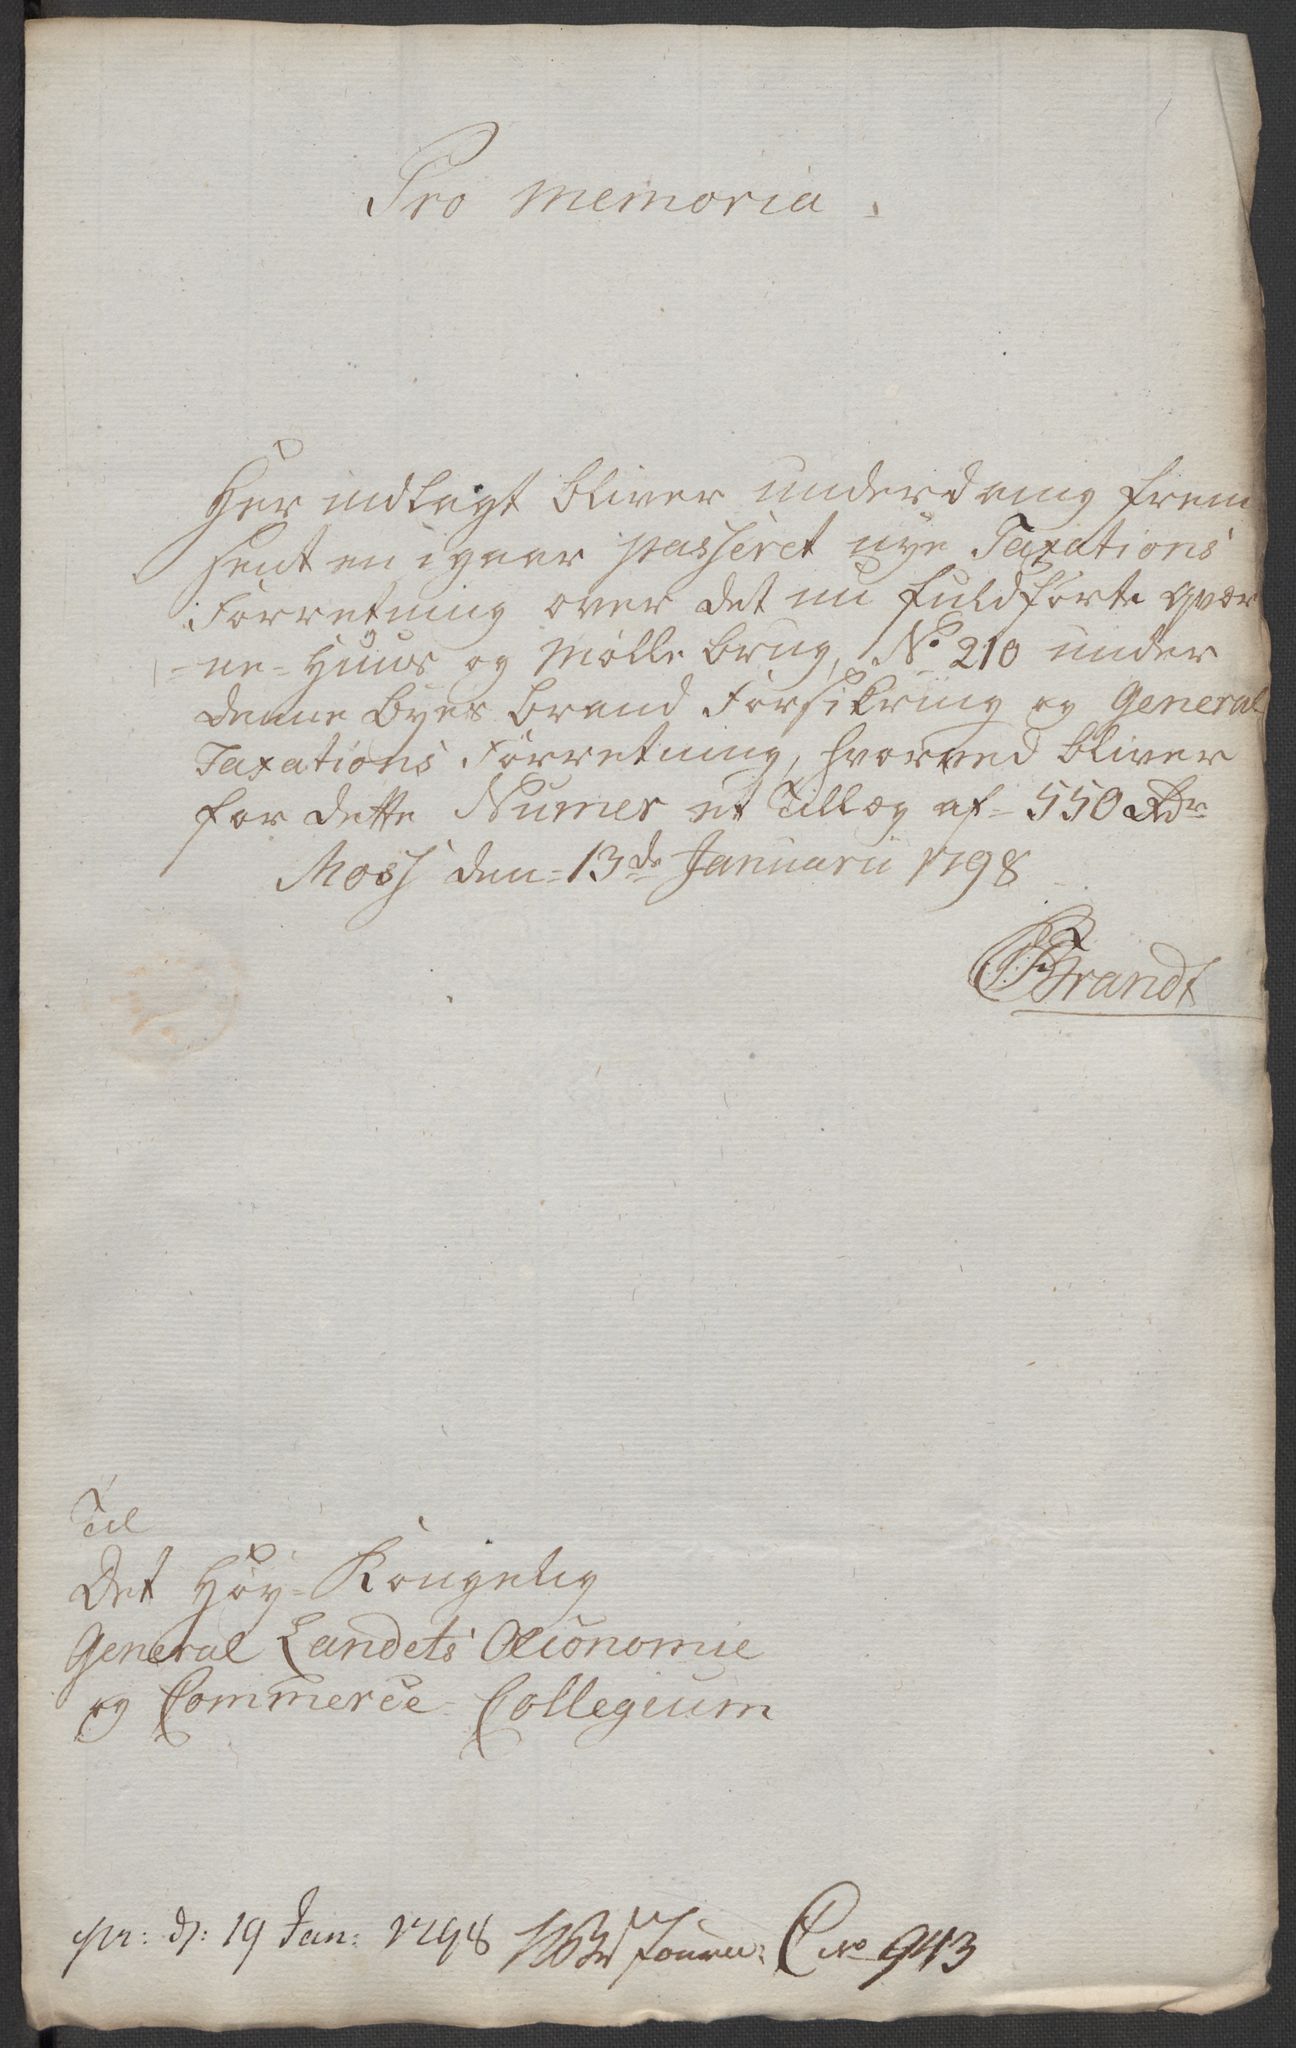 Pro memoria.
Her indlagt bliver underdanig frem
sent en igaar passeret nye Taxations
Forretning over det nu fuldførte Qvær
=ne=Huus og Mølle brug, No 210 under
denne Byes brand Forsikring og General
Taxations Forretning, hvorved bliver
for dette Numer et Tillæg af = 550 Rdr
Moss den = 13de Januarii 1798
Brandt
Til
Det Høy=Kongelig
General Landets Oeconomie
og Commerce Collegium
pr: d: 19 Jan: 1798 Journ: C No 943